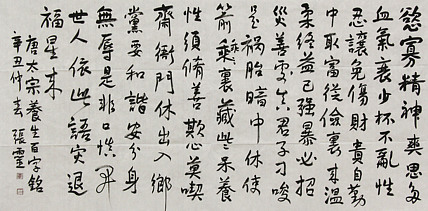 慾寡精神爽思多
血氣衰少杯不亂性
忍讓免傷財貴自勤
中取富從儉裏來溫
柔終益己強暴必招
災善處真君子刁唆
是禍胎暗中休使
箭乖裏藏些呆養
性須脩善欺心莫喫
齋衙門休出入鄉
黨要和諧安分身
無辱是非口慎開
世人依此語災退
福星来
唐太宗養生百字銘
辛丑仲春 張